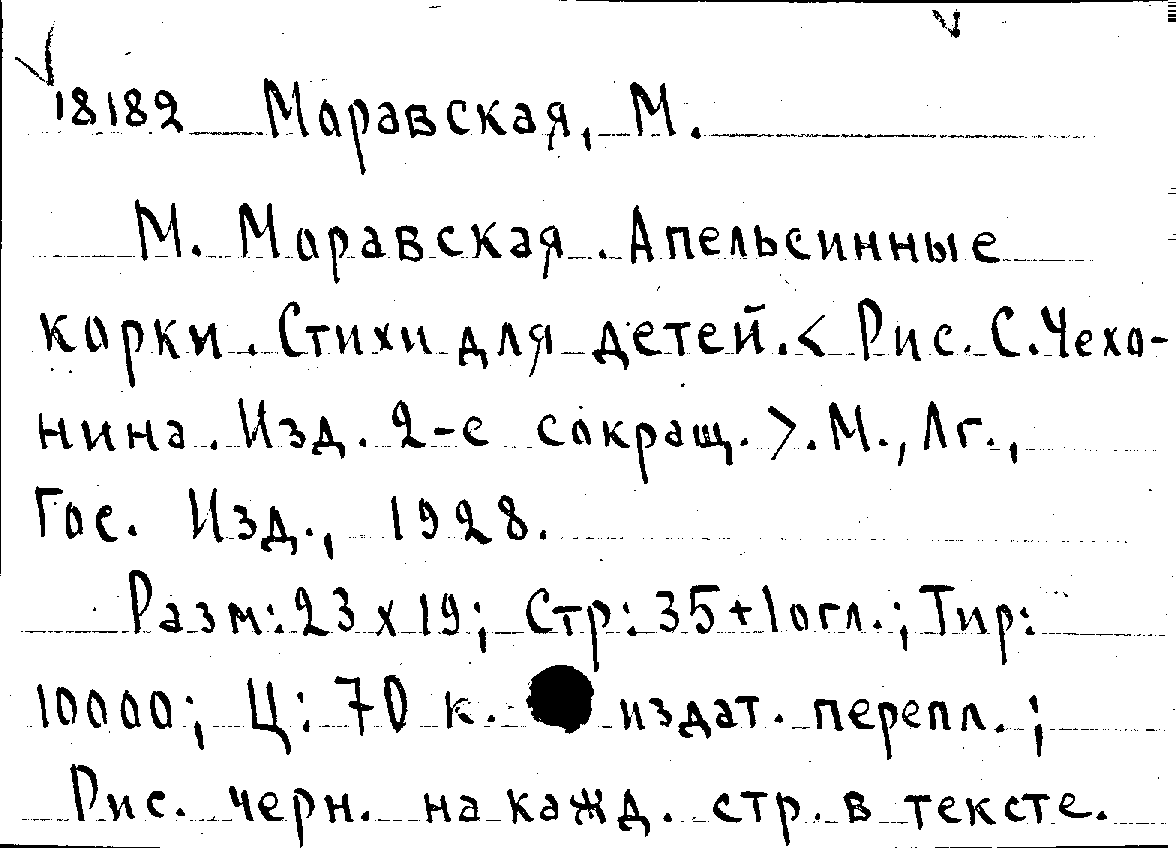 18182 Моравская, М.
М. Моравская. Апельсинные
корки. Стихи для детей. < Рис. С. Чехо-
нина. Изд. 2-е сокращ. >. М., Лг.,
Гос. Изд., 1928.
Разм: 23 х 19; Стр: 35 + 1 огл.; Тир:
10000; Ц: 70 к. издат. перепл.;
Рис. черн. на кажд. стр. в тексте.